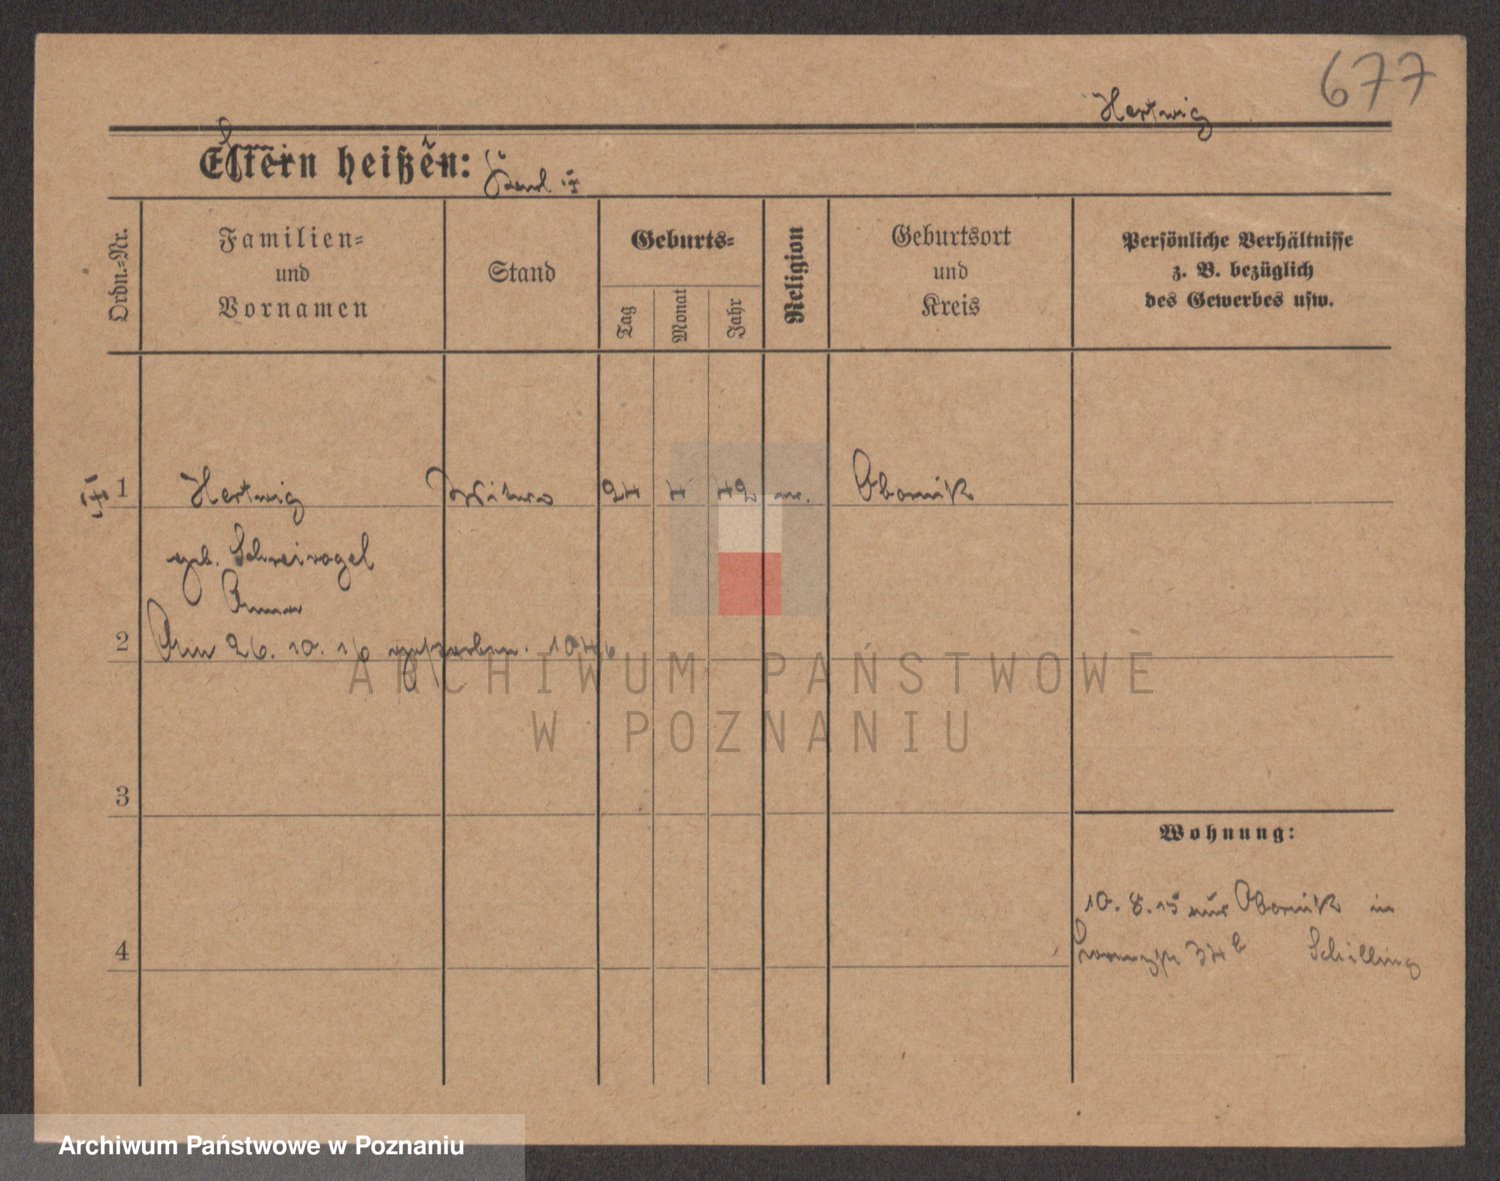 677
Hertwig
Eltern heißen:
Ordn.-Nr.
Familien- und Vornamen
Stand
Geburts-
Tag
Monat
Jahr
Religion
Geburtsort und Kreis
Persönliche Verhältnisse z. B. bezüglich des Gewerbes usw.
1 Hertwig Witwe 24 42 Obornik
geb. Schreivogel
Anna
2 Am 26. 10. 16 gestorben.
3
Wohnung:
10. 8. 15 aus Obornik in
4 34 b Schilling
ARCHIWUM PAŃSTWOWE
W POZNANIU
Archiwum Państwowe w Poznaniu